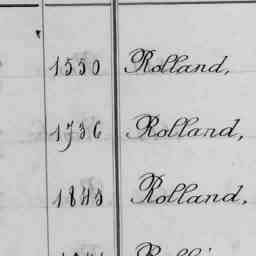 1550 Rolland,
1736 Rolland,
1848 Rolland,